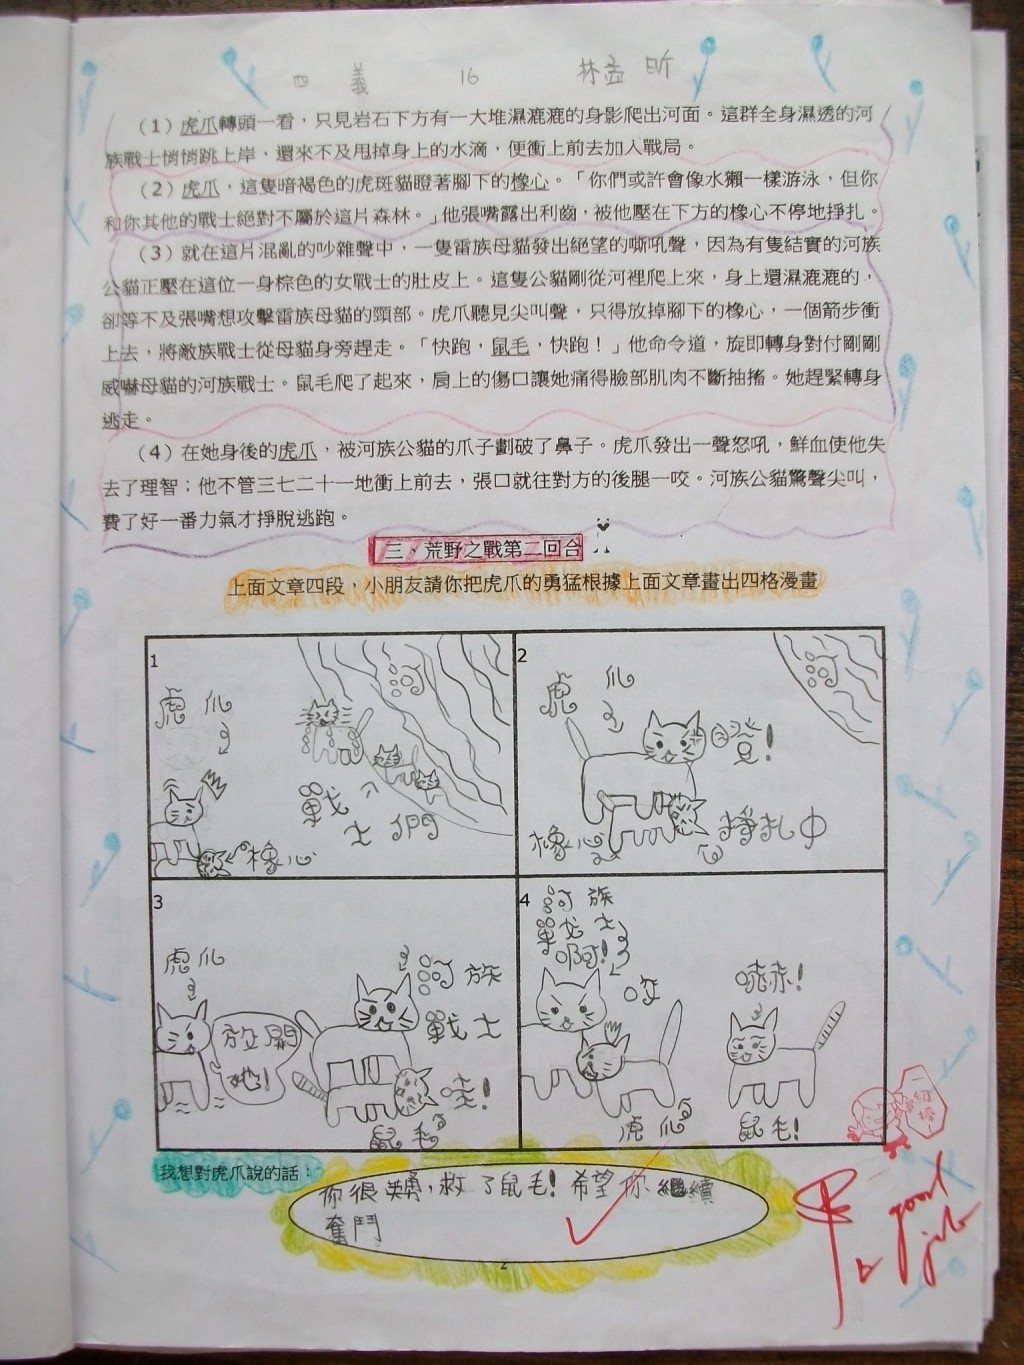 四 義 16 林孟昕
（1）虎爪轉頭一看，只見岩石下方有一大堆濕漉漉的身影爬出河面。這群全身濕透的河
族戰士悄悄跳上岸，還來不及甩掉身上的水滴，便衝上前去加入戰局。
（2）虎爪，這隻暗褐色的虎斑貓瞪著腳下的橡心。「你們或許會像水獺一樣游泳，但你
和你其他的戰士絕對不屬於這片森林。」他張嘴露出利齒，被他壓在下方的橡心不停地掙扎。
（3）就在這片混亂的吵雜聲中，一隻雷族母貓發出絕望的嘶吼聲，因為有隻結實的河族
公貓正壓在這位一身棕色的女戰士的肚皮上。這隻公貓剛從河裡爬上來，身上還濕漉漉的，
卻等不及張嘴想攻擊雷族母貓的頸部。虎爪聽見尖叫聲，只得放掉腳下的橡心，一個箭步衝
上去，將敵族戰士從母貓身旁趕走。「快跑，鼠毛，快跑！」他命令道，旋即轉身對付剛剛
威嚇母貓的河族戰士。鼠毛爬了起來，肩上的傷口讓她痛得臉部肌肉不斷抽搐。她趕緊轉身
逃走。
（4）在她身後的虎爪，被河族公貓的爪子劃破了鼻子。虎爪發出一聲怒吼，鮮血使他失
去了理智；他不管三七二十一地衝上前去，張口就往對方的後腿一咬。河族公貓驚聲尖叫，
費了好一番力氣才掙脫逃跑。
三、荒野之戰第二回合
上面文章四段，小朋友請你把虎爪的勇猛根據上面文章畫出四格漫畫
1
河
虎爪
戰士們
橡心
2
河
虎爪
橡心
掙扎中
3
虎爪
放開
她!
河族
戰士
哇!
鼠毛
4
河族
戰士
啊!
咬
虎爪
鼠毛!
我想對虎爪說的話：
你很英勇，救了鼠毛！希望你繼續
奮鬥
good
job
2